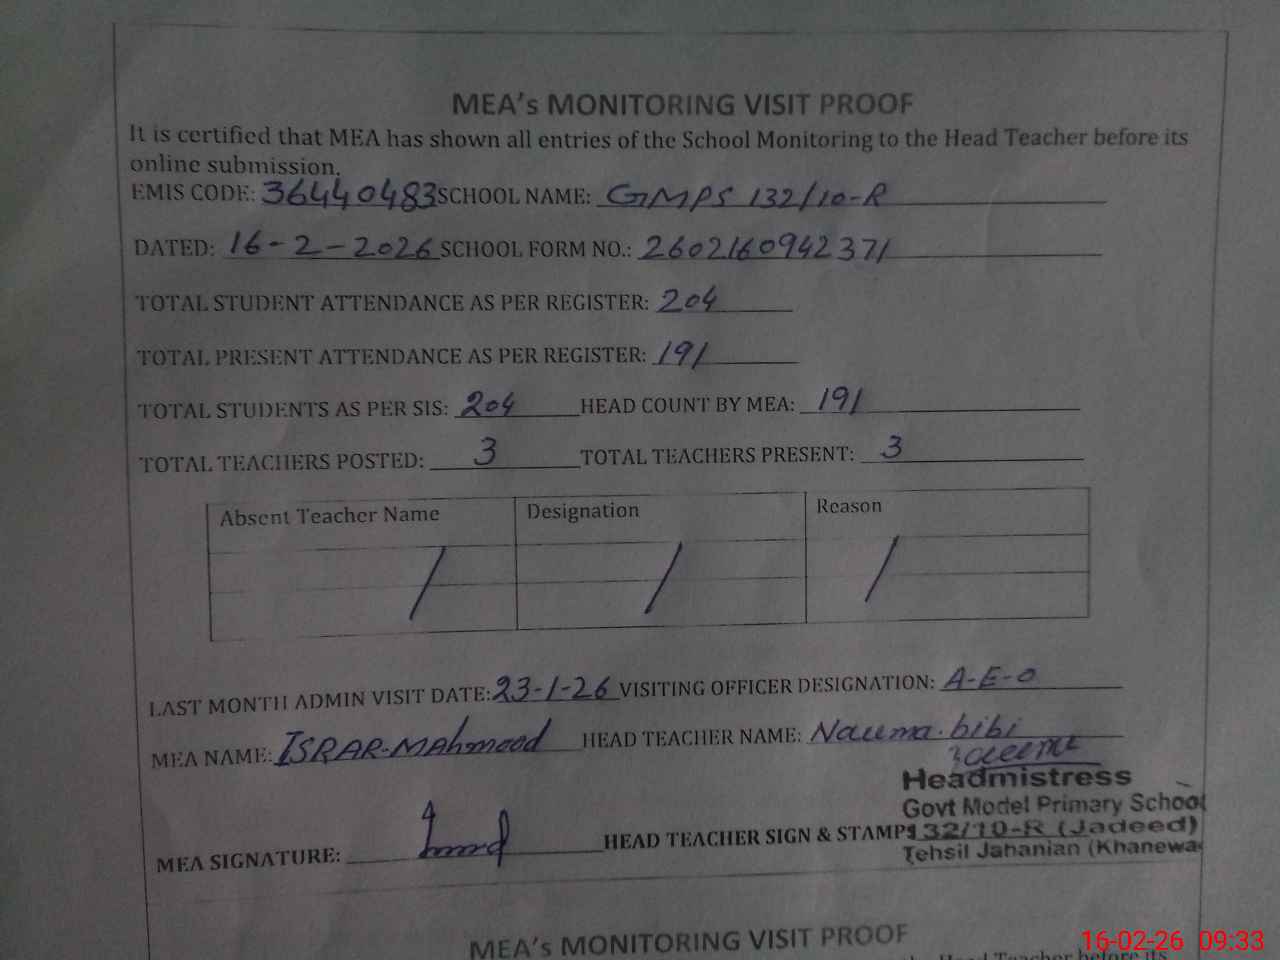 MEA's MONITORING VISIT PROOF
It is certified that MEA has shown all entries of the School Monitoring to the Head Teacher before its
online submission.
EMIS CODE: 36440483 SCHOOL NAME: GMPS 132/10-R
DATED: 16-2-2026 SCHOOL FORM NO.: 260216094237/
TOTAL STUDENT ATTENDANCE AS PER REGISTER: 204
TOTAL PRESENT ATTENDANCE AS PER REGISTER: 191
TOTAL STUDENTS AS PER SIS: 204 HEAD COUNT BY MEA: 191
TOTAL TEACHERS POSTED: 3 TOTAL TEACHERS PRESENT: 3
Absent Teacher Name Designation Reason
/ / /
LAST MONTH ADMIN VISIT DATE: 23-1-26 VISITING OFFICER DESIGNATION: A-E-O
MEA NAME: ISRAR-MAhmood HEAD TEACHER NAME: Nauma.bibi
Headmistress
Govt Model Primary School
MEA SIGNATURE: HEAD TEACHER SIGN & STAMP: 132/10-R (Jadeed)
Tehsil Jahanian (Khanewa
MEA's MONITORING VISIT PROOF
Head Teacher before its
16-02-26 09:33